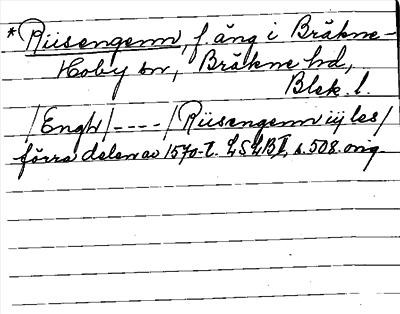 *Riisengenn, f. äng i Bräkne-
Hoby sn, Bräkne hd,
Blek. l.
/Engh/----/Riisengenn iij les/
förra delen av 1570-t. LSLB I, s. 508. orig.